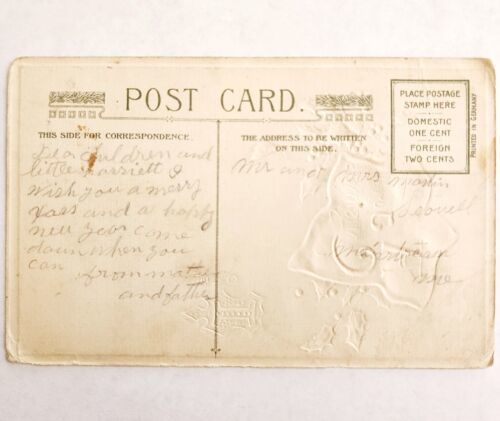 POST CARD.
THIS SIDE FOR CORRESPONDENCE.
THE ADDRESS TO BE WRITTEN
ON THIS SIDE.
PLACE POSTAGE
STAMP HERE
DOMESTIC
ONE CENT
FOREIGN
TWO CENTS
PRINTED IN GERMANY
Dear children and
little Harriett I
Wish you a merry
Xmas and a happy
new year come
down when you
can
from mother
and father
Mr and Mrs